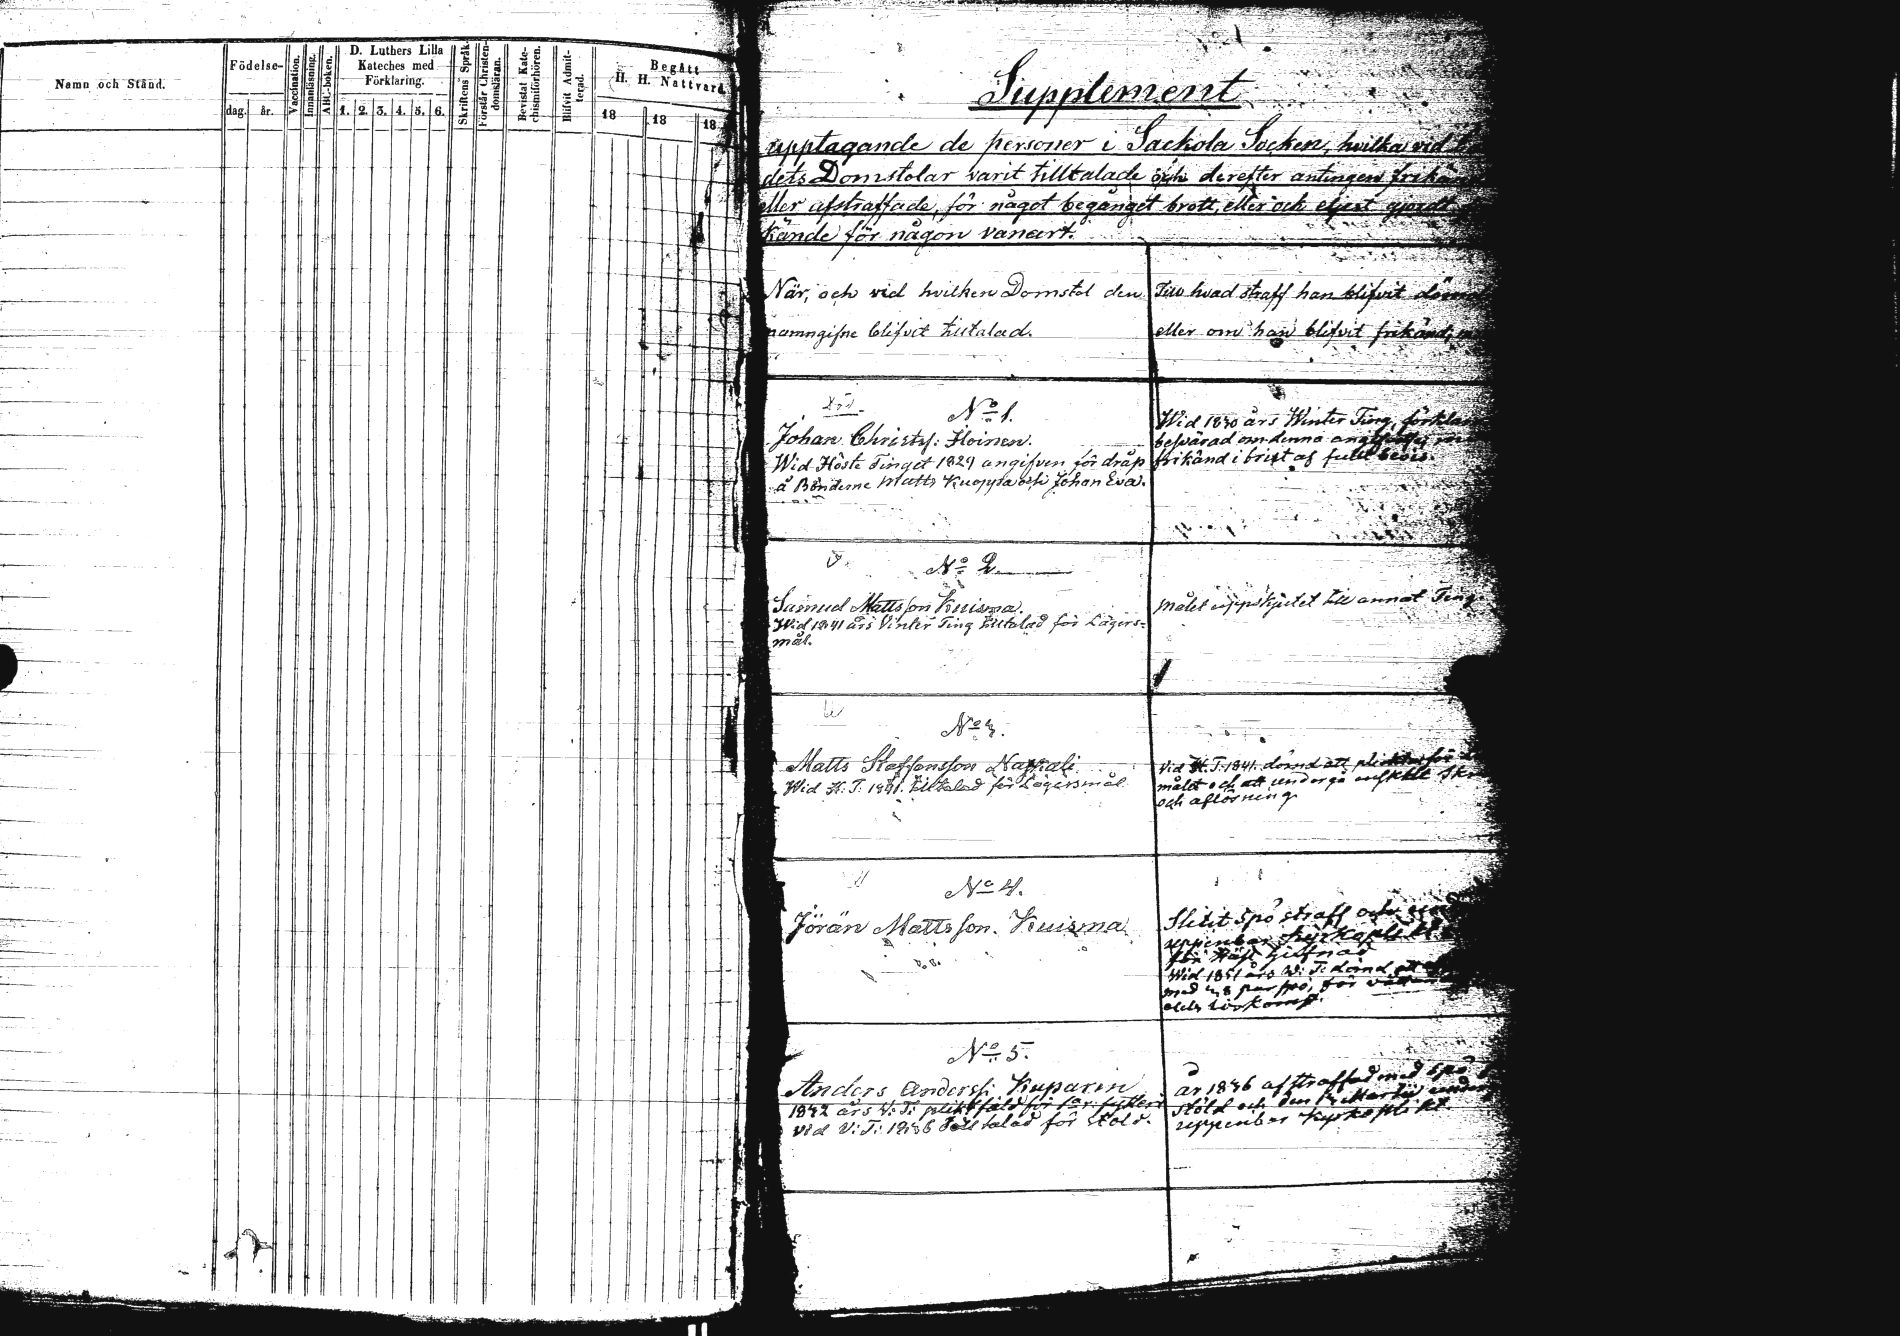 Namn och Stånd.
Födelse-
dag. år.
Vaccination.
Innanläsning.
ABC-boken.
D. Luthers Lilla
Kateches med
Förklaring.
1. 2. 3. 4. 5. 6.
Skriftens Språk.
Förstår Christen-
domsläran.
Bevistat Kate-
chismiförhören.
Blifvit Admit-
terad.
Begått
H. H. Nattvard.
18 18 18
Supplement
upptagande de personer i Sackola Socken, hvilka vid
dets Domstolar varit tilltalade och derefter antingen
eller afstraffade, för något begånget brott, eller och eljest gjordt
kände för någon vanart.
När, och vid hvilken Domstol den
namngifne blifvit tilltalad.
Till hvad straff han blifvit
eller om han blifvit frikänd,
No 1.
Johan Christf: Iloinen.
Wid Höste Tinget 1829 angifven för dråp
å Bönderne Matts Kuoppa och Johan Eva.
Wid 1830 års Winter Ting,
besvärad om denna
frikänd i brist af fullt bevis.
No 2
Samuel Mattsson Kuisma.
Wid 1841 års Vinter Ting tilltalad för Lägers-
mål.
målet uppskjutet till annat Ting
No 3.
Matts Staffansson Nappali
Wid H: T: 1841 tilltalad för Lägersmål
vid H. T. 1841. dömd att plikta för
målet och att undergå enskildt
och aflösning
No 4.
Jöran Mattsson Kuisma
Slitit spö straff och
uppenbar kyrkoplikt
för
Wid 1851 års W: T: dömd att
med 28 par spö, för
No 5.
Anders Anderss: Kuparin
1842 års V: T: pliktfäld för
vid V: T: 1846 tilltalad för stöld.
år 1846 afstraffad med spö
stöld och den
uppenbar kyrkoplikt.